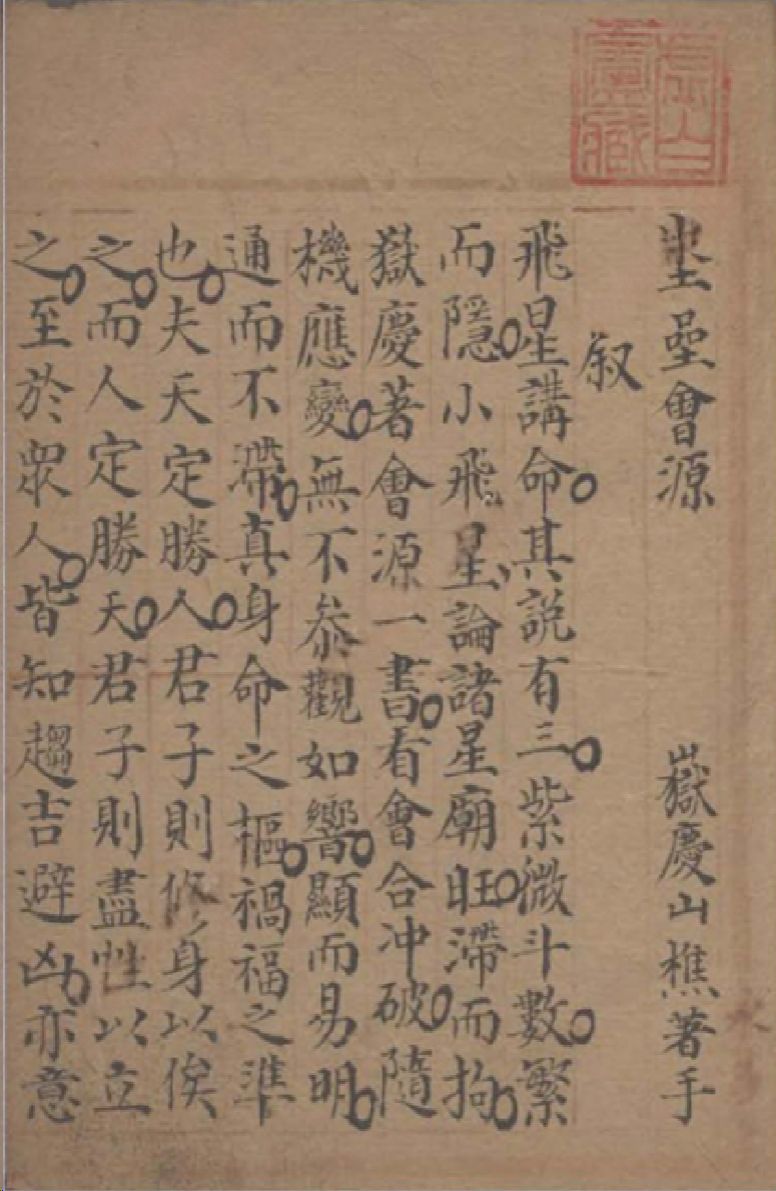 虛白廬藏
會源 嶽慶山樵著手
叙
飛星講命。其說有三。紫微斗數。繁
而隱。小飛星論諸星廟旺。滯而拘。
獄慶著會源一書。看會合冲破。隨
機應變。無不叅觀如響。顯而易明。
通而不滯。真身命之樞。禍福之準
也。夫天定勝人。君子則修身以俟
之。而人定勝天。君子則盡性以立
之。至於眾人。皆知趨吉避凶。亦意